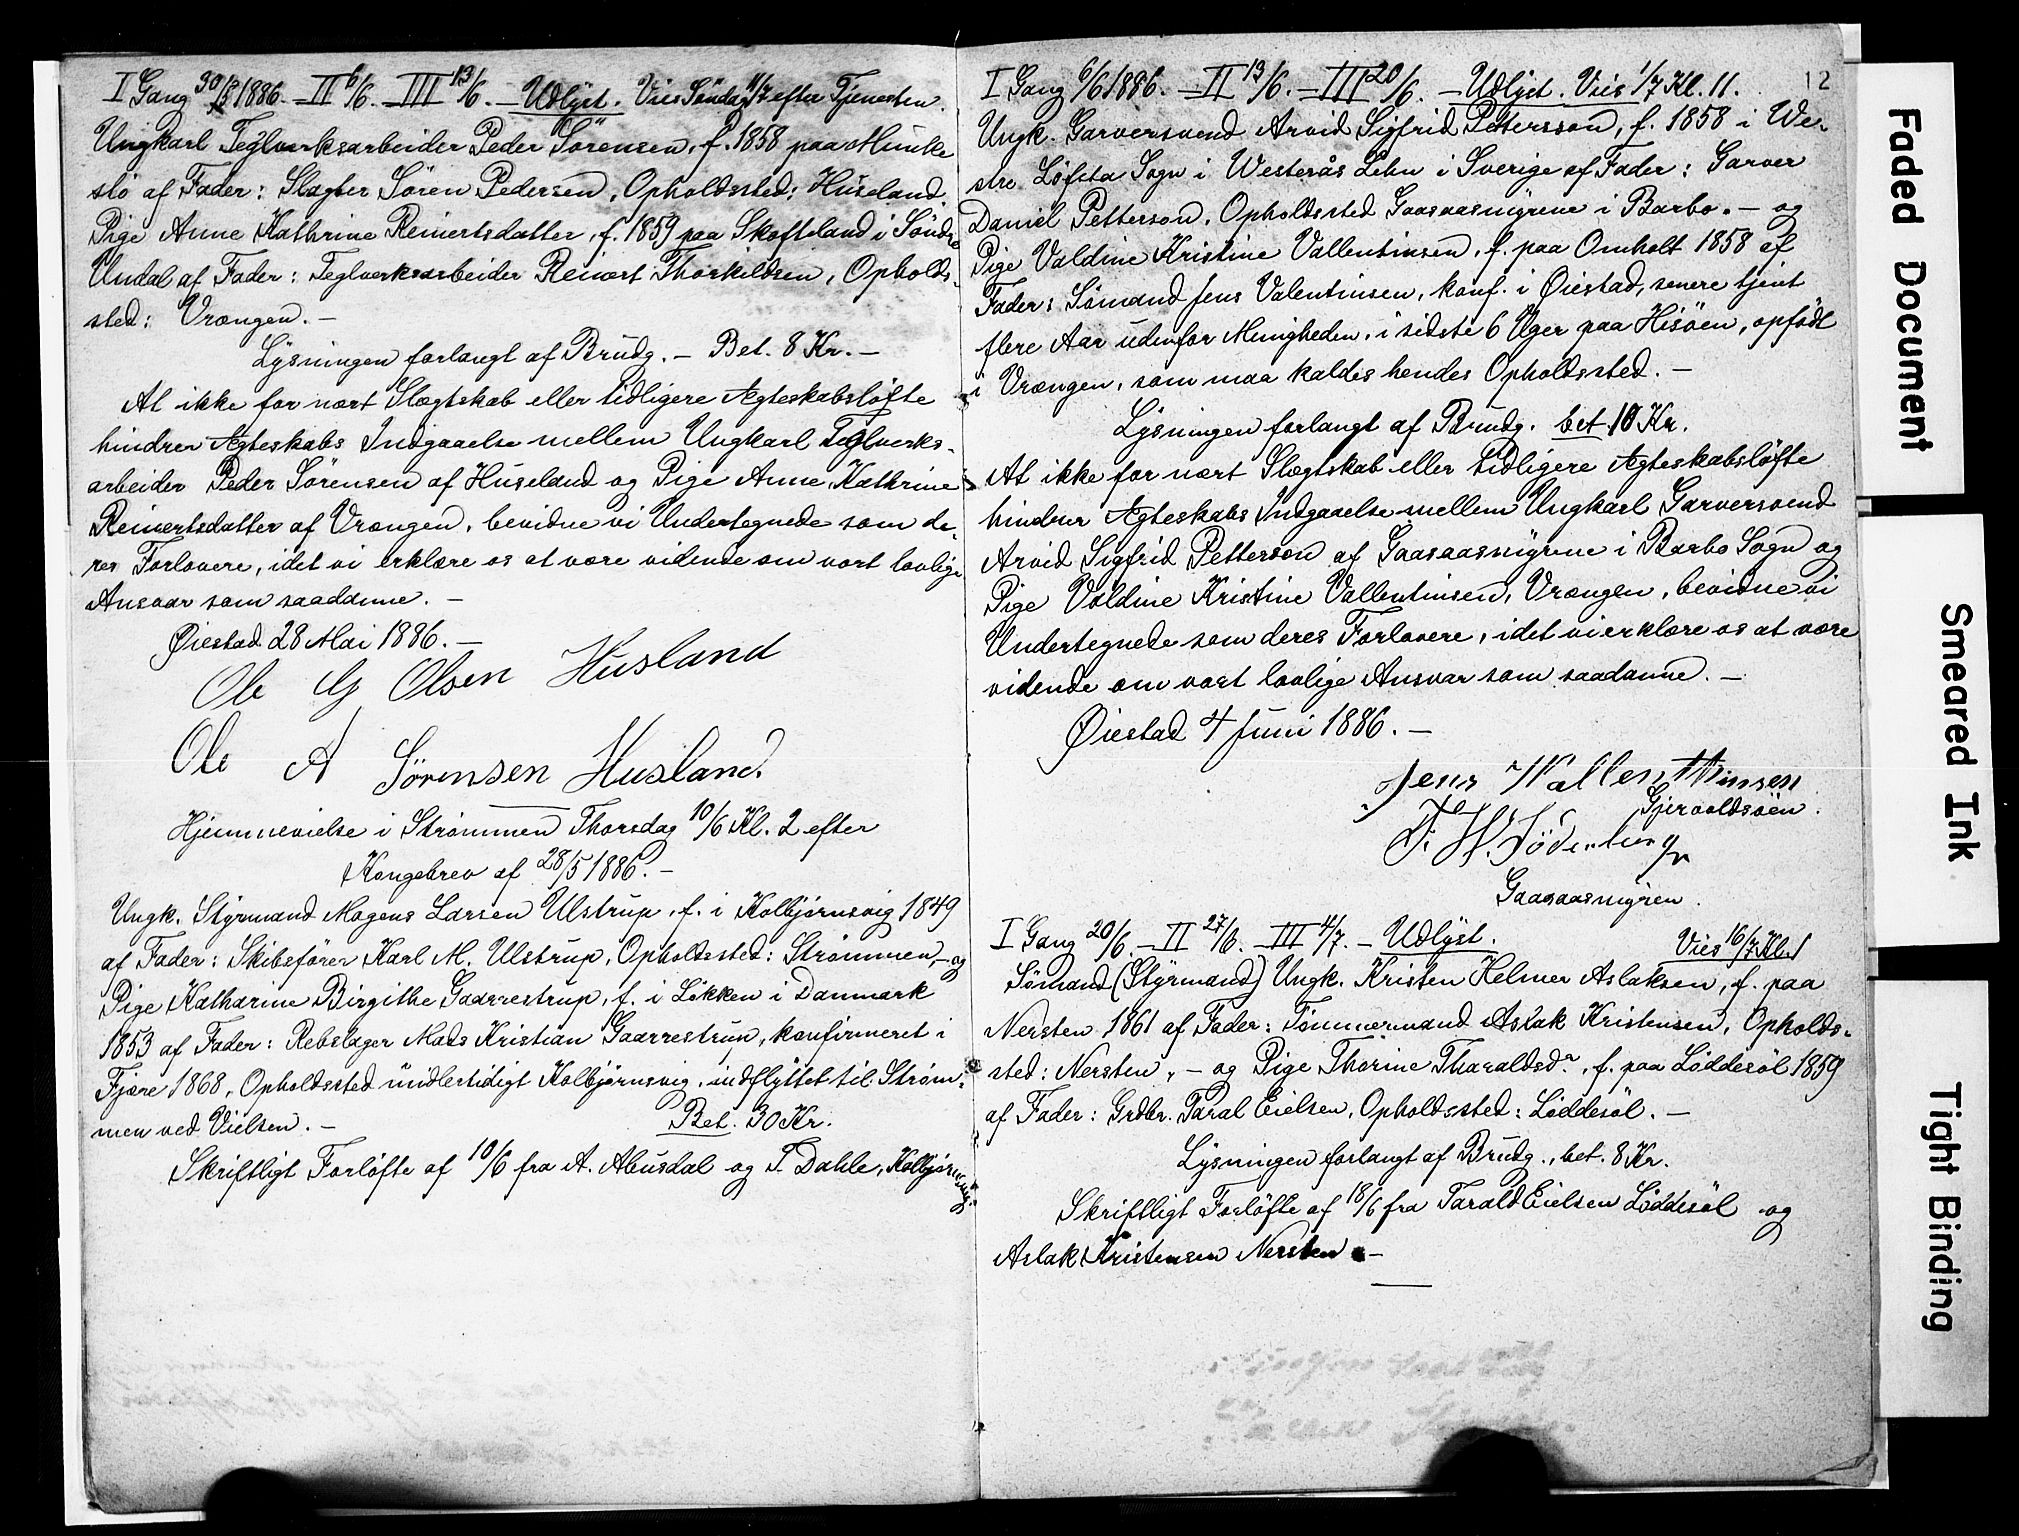 I Gang 30/5 1886. – II 6/6. – III 13/6. – Udlyst. Vies Söndag 4/7 efter Tjenesten.
Ungkarl Teglverksarbeider Peder Sörensen, f. 1858 paa Munke
slö af Fader: Slagter Sören Pedersen, Opholdssted: Huseland.
Pige Anne Kathrine Reinertsdatter, f. 1859 paa Skofteland i Söndre
Undal af Fader: Teglverksarbeider Reinert Thorkildsen, Opholds-
sted: Vrængen. –
Lysningen forlangt af Brudg. – Bet. 8 Kr. –
At ikke for nært Slægtskab eller tidligere Ægteskabslöfte
hindrer Ægteskabs Indgaaelse mellem Ungkarl Teglverks-
arbeider Peder Sörensen af Huseland og Pige Anne Kathrine
Reinertsdatter af Vrængen, bevidne vi Undertegnede som de-
res Forlovere, idet vi erklære os at være vidende om vort lovlige
Ansvar som saadanne. –
Øiestad 28 Mai 1886. –
Ole G Olsen Husland
Ole A Sörensen Husland.
Hjemmevielse i Strömmen Thorsdag 10/6 Kl. 2 efter
Kongebrev af 28/5 1886. –
Ungk. Styrmand Mogens Larsen Ulstrup, f. i Kolbjörnsvig 1849
af Fader: Skibsförer Karl M. Ulstrup, Opholdssted: Strömmen, – og
Pige Katharine Birgithe Gaarrestrup, f. i Lökken i Danmark
1853 af Fader: Rebslager Mads Kristian Gaarrestrup, konfirmeret i
Fjære 1868, Opholdssted midlertidigt Kolbjörnsvig, indflyttet til Ström-
men ved Vielsen. – Bet. 30 Kr.
Skriftligt Forlöfte af 10/6 fra A. Abusdal og T. Dahle, Kolbjörnsvig.
12
I Gang 6/6 1886. – II 13/6. – III 20/6. – Udlyst. Vies 1/7 Kl. 11.
Ungk. Garversvend Arvid Sigfrid Pettersson, f. 1858 i We-
stre Löfsta Sogn i Westerås Lehn i Sverige af Fader: Garver
Daniel Petterson, Opholdssted Gaasaasmyrene i Barbo. – og
Pige Valdine Kristine Vallentinsen, f. paa Omholt 1858 af
Fader: Sömand Jens Valentinsen, konf. i Øiestad, senere tjent
flere Aar udenfor Menigheden, i sidste 6 Uger paa Hisöen, opfödt
i Vrængen, som maa kaldes hendes Opholdssted. –
Lysningen forlangt af Brudg. bet 10 Kr.
At ikke for nært Slægtskab eller tidligere Ægteskabslöfte
hindrer Ægteskabs Indgaaelse mellem Ungkarl Garversvend
Arvid Sigfrid Petterson af Gaasaasmyrene i Barbo Sogn og
Pige Valdine Kristine Vallentinsen, Vrængen, bevidne vi
Undertegnede som deres Forlovere, idet vi erklære os at være
vidende om vort lovlige Ansvar som saadanne. –
Øiestad 4 Juni 1886. –
Jens Wallentinsen
Gjervoldsöen.
F. W. Söderberg
Gaasaasmyren.
I Gang 20/6. – II 27/6. – III 4/7. – Udlyst. Vies 16/7 Kl. 1
Sömand (Styrmand) Ungk. Kristen Helmer Aslaksen, f. paa
Nersten 1861 af Fader: Tömmermand Aslak Kristensen, Opholds-
sted: Nersten, – og Pige Thorine Tharaldsdr., f. paa Löddesöl 1859
af Fader: Grdbr. Taral Eielsen, Opholdssted: Löddesöl. –
Lysningen forlangt af Brudg., bet. 8 Kr.
Skriftligt Forlöfte af 18/6 fra Tarald Eielsen Löddesöl og
Aslak Kristensen Nersten. –
Faded Document
Smeared Ink
Tight Binding